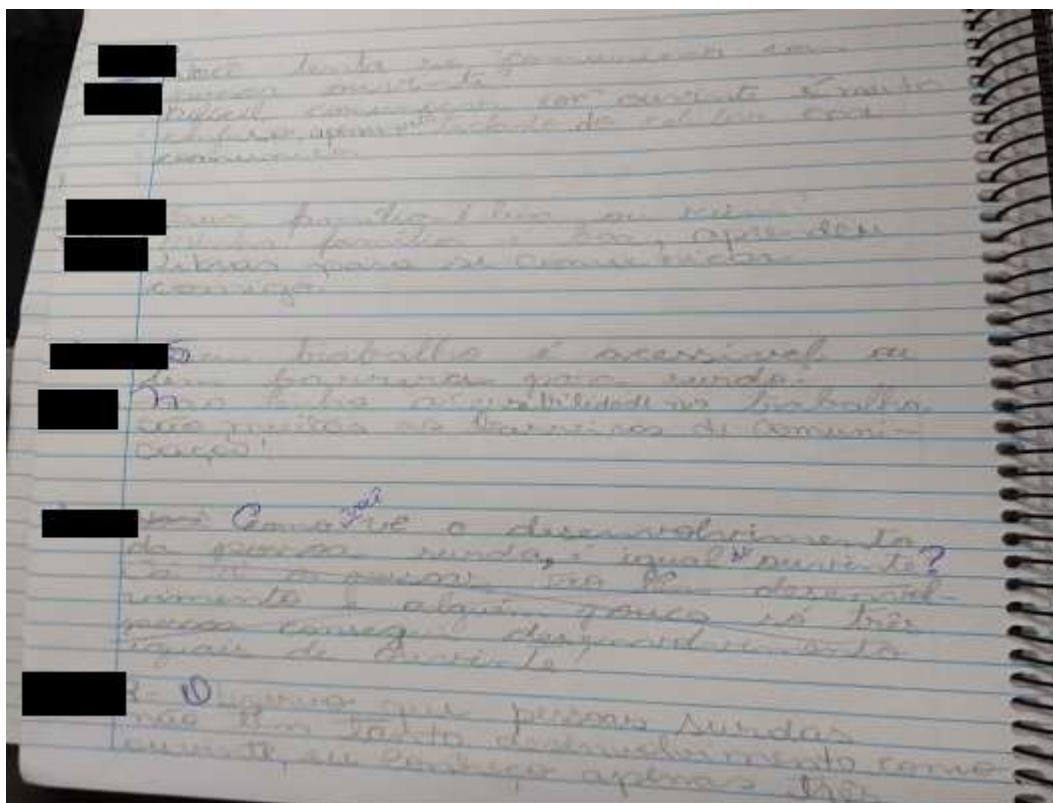 Você tenta se comunicar com
pessoa ouvinte?
Difícil comunicação com ouvinte é muito
apenas
comunico
Sua família é boa ou ruim?
Minha família é boa, aprendeu
Libras para se comunicar
comigo.
Seu trabalho é acessível ou
tem barreiras para surdo.
Não tenho acessibilidade no trabalho
são muitas as barreiras de comuni-
cação!
Como você vê o desenvolvimento
da pessoa surda, é igual ouvinte?
Eu a pessoa não tem desenvol-
vimento alguém pouco só três
pessoa consegue desenvolvimento
iguais de ouvinte!
R- Observo que pessoas surdas
não têm tanto desenvolvimento como
ouvinte, eu conheço apenas três